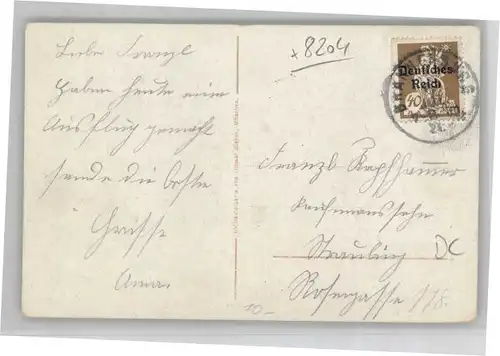 Liebe Franzl
Haben heute einen
Ausflug gemacht
sende die besten
Grüsse
Anna.
x 8204
Deutsches
Reich
40
Franzl
Kaufmannssohn
Straubing
Rosengasse 178.
DC
10-